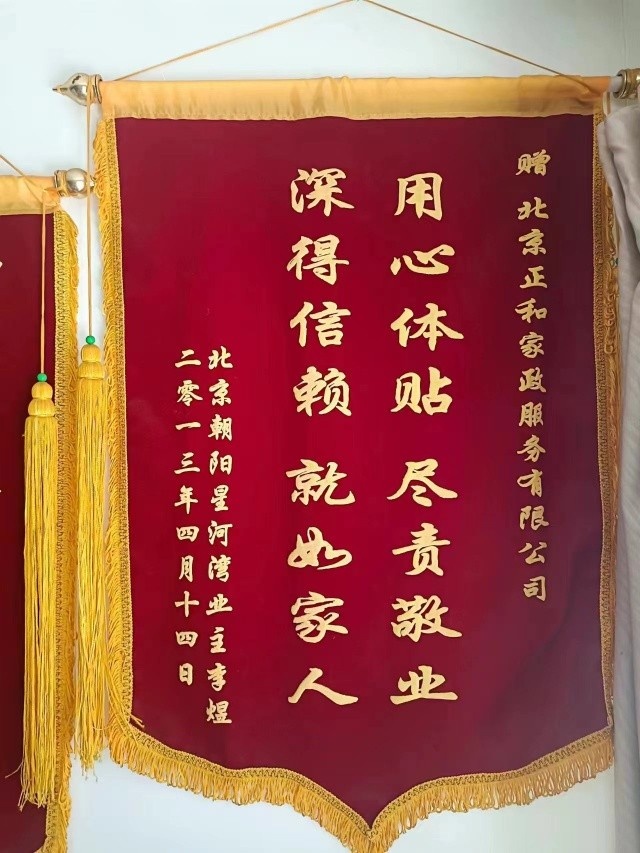 赠 北京正和家政服务有限公司
用心体贴 尽责敬业
深得信赖 就如家人
北京朝阳星河湾业主李煜
二零一三年四月十四日